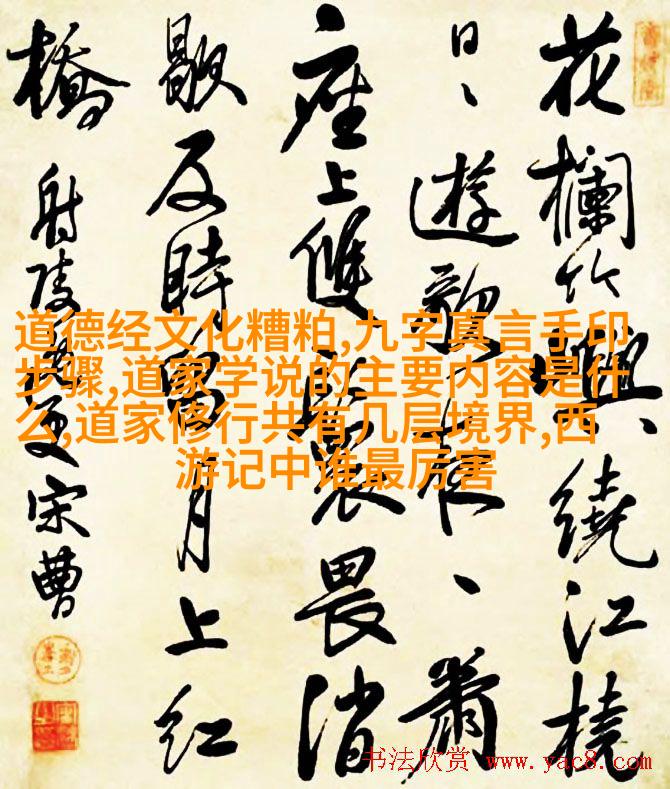 花欄竹嶼繞江橈
日〻遊歌夜〻蕭
座上雙裳畏消
歇反時留月上紅
橋
射陵叟宋曹
道德经文化糟粕,九字真言手印
步骤,道家学说的主要内容是什
么,道家修行共有几层境界,西
游记中谁最厉害
书法欣赏 www.yac8.com